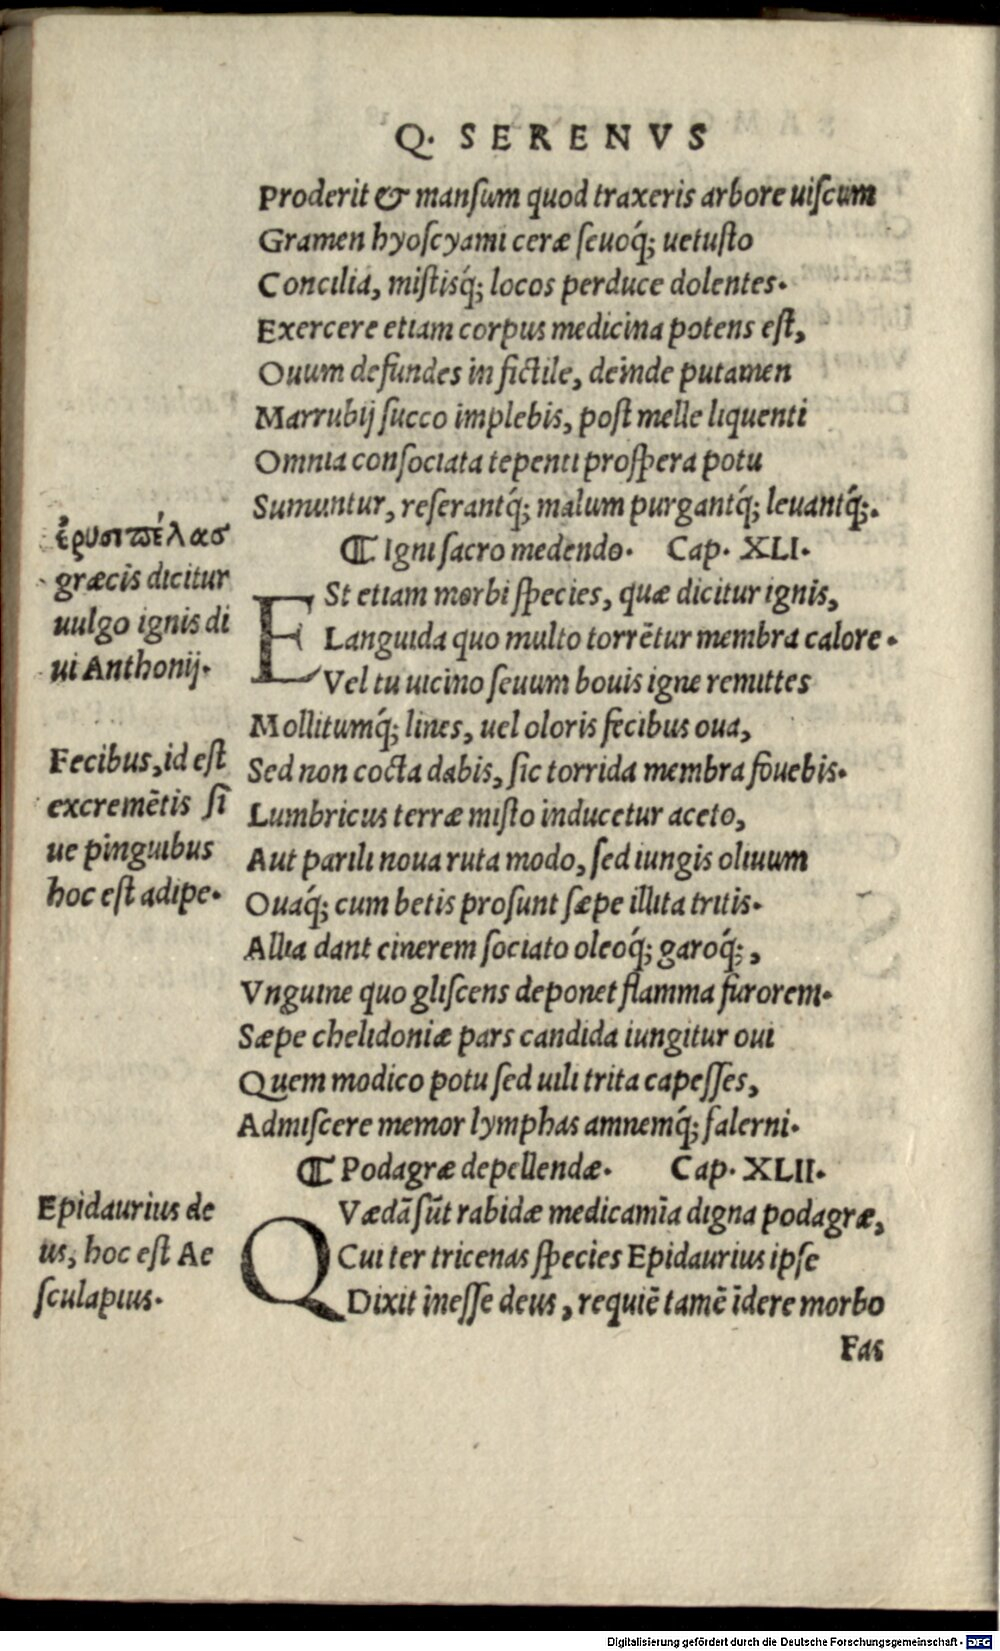 Q. SERENVS
Proderit & mansum quod traxeris arbore uiscum
Gramen hyoscyami ceræ seuoq́; uetusto
Concilia, mistisq́; locos perduce dolentes.
Exercere etiam corpus medicina potens est,
Ouum defundes in fictile, deinde putamen
Marrubij succo implebis, post melle liquenti
Omnia consociata tepenti prospera potu
Sumuntur, reserantq́; malum purgantq́; leuantq́;.
¶ Igni sacro medendo. Cap. XLI.
ἐρυσιπέλας
græcis dicitur
uulgo ignis di
ui Anthonij.
ESt etiam morbi species, quæ dicitur ignis,
Languida quo multo torrētur membra calore.
Vel tu uicino seuum bouis igne remittes
Mollitumq́; lines, uel oloris fecibus oua,
Sed non cocta dabis, sic torrida membra fouebis.
Lumbricus terræ misto inducetur aceto,
Aut parili noua ruta modo, sed iungis oliuum
Ouaq́; cum betis prosunt sæpe illita tritis.
Allia dant cinerem sociato oleoq́; garoq́;,
Vnguine quo gliscens deponet flamma furorem.
Sæpe chelidoniæ pars candida iungitur oui
Quem modico potu sed uili trita capesses,
Admiscere memor lymphas amnemq́; falerni.
Fecibus, id est
excremētis si
ue pinguibus
hoc est adipe.
¶ Podagræ depellendæ. Cap. XLII.
QVædā sūt rabidæ medicamīa digna podagræ,
Cui ter tricenas species Epidaurius ipse
Dixit inesse deus, requiē tamē īdere morbo
Epidaurius de
us, hoc est Ae
sculapius.
Fas
Digitalisierung gefördert durch die Deutsche Forschungsgemeinschaft - DFG